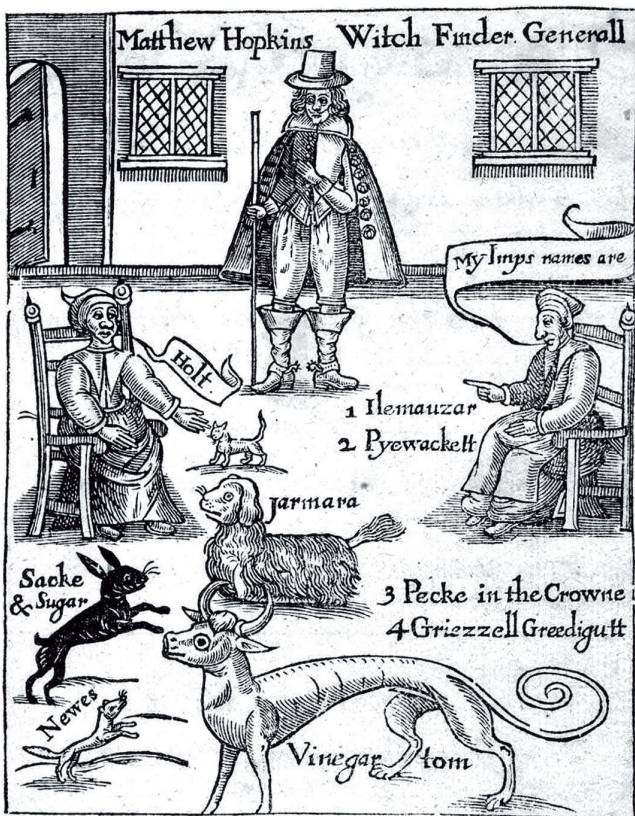 Matthew Hopkins Witch Finder Generall
My Imps names are
Holt
1 Ilemauzar
2 Pyewackett
Jarmara
Sacke
& Sugar
3 Pecke in the Crowne
4 Griezzell Greedigutt
Newes
Vinegar tom